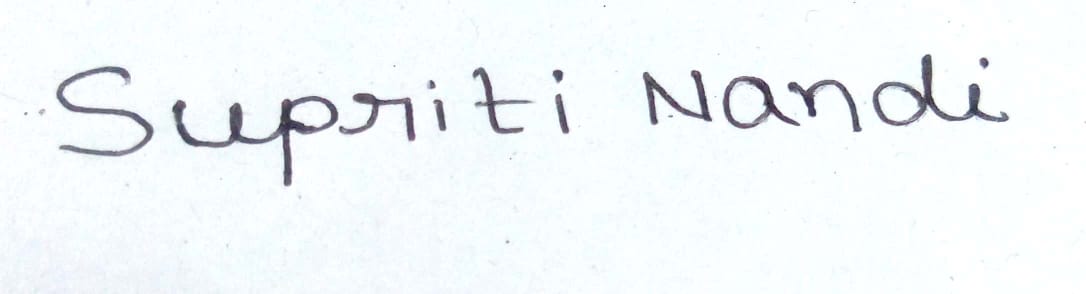 Supriti Nandi